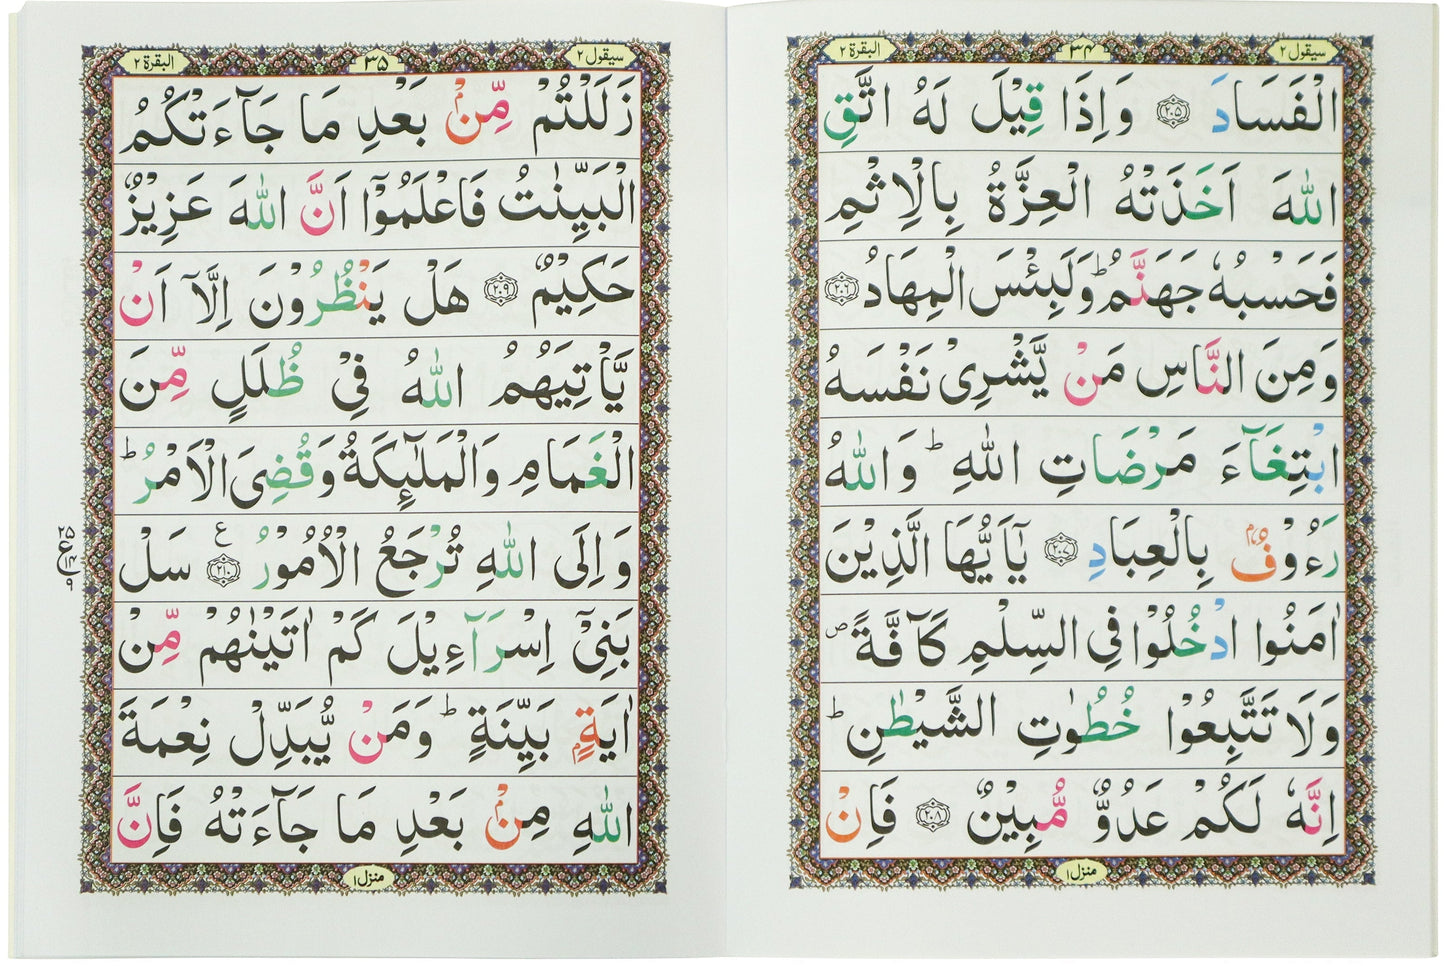 سيقول ٢
٣٤
البقرة ٢
الْفَسَادَ ﴿٢٠٥﴾ وَاِذَا قِيْلَ لَهُ اتَّقِ
اللّٰهَ اَخَذَتْهُ الْعِزَّةُ بِالْاِثْمِ
فَحَسْبُهٗ جَهَنَّمُ ؕ وَلَبِئْسَ الْمِهَادُ ﴿٢٠٦﴾
وَمِنَ النَّاسِ مَنْ يَّشْرِىْ نَفْسَهُ
ابْتِغَآءَ مَرْضَاتِ اللّٰهِ ؕ وَاللّٰهُ
رَءُوْفٌۢ بِالْعِبَادِ ﴿٢٠٧﴾ يٰٓاَيُّهَا الَّذِيْنَ
اٰمَنُوا ادْخُلُوْا فِى السِّلْمِ كَآفَّةً ۪
وَلَا تَتَّبِعُوْا خُطُوٰتِ الشَّيْطٰنِ ؕ
اِنَّهٗ لَكُمْ عَدُوٌّ مُّبِيْنٌ ﴿٢٠٨﴾ فَاِنْ
منزل ١
سيقول ٢
٣٥
البقرة ٢
زَلَلْتُمْ مِّنْۢ بَعْدِ مَا جَآءَتْكُمُ
الْبَيِّنٰتُ فَاعْلَمُوْٓا اَنَّ اللّٰهَ عَزِيْزٌ
حَكِيْمٌ ﴿٢٠٩﴾ هَلْ يَنْظُرُوْنَ اِلَّآ اَنْ
يَّاْتِيَهُمُ اللّٰهُ فِىْ ظُلَلٍ مِّنَ
الْغَمَامِ وَالْمَلٰٓئِكَةُ وَقُضِىَ الْاَمْرُ ؕ
وَاِلَى اللّٰهِ تُرْجَعُ الْاُمُوْرُ ﴿٢١٠﴾ ع سَلْ
بَنِىْٓ اِسْرَآءِيْلَ كَمْ اٰتَيْنٰهُمْ مِّنْ
اٰيَةٍۢ بَيِّنَةٍ ؕ وَمَنْ يُّبَدِّلْ نِعْمَةَ
اللّٰهِ مِنْۢ بَعْدِ مَا جَآءَتْهُ فَاِنَّ
منزل ١
٢٥
ع
١٤
٩